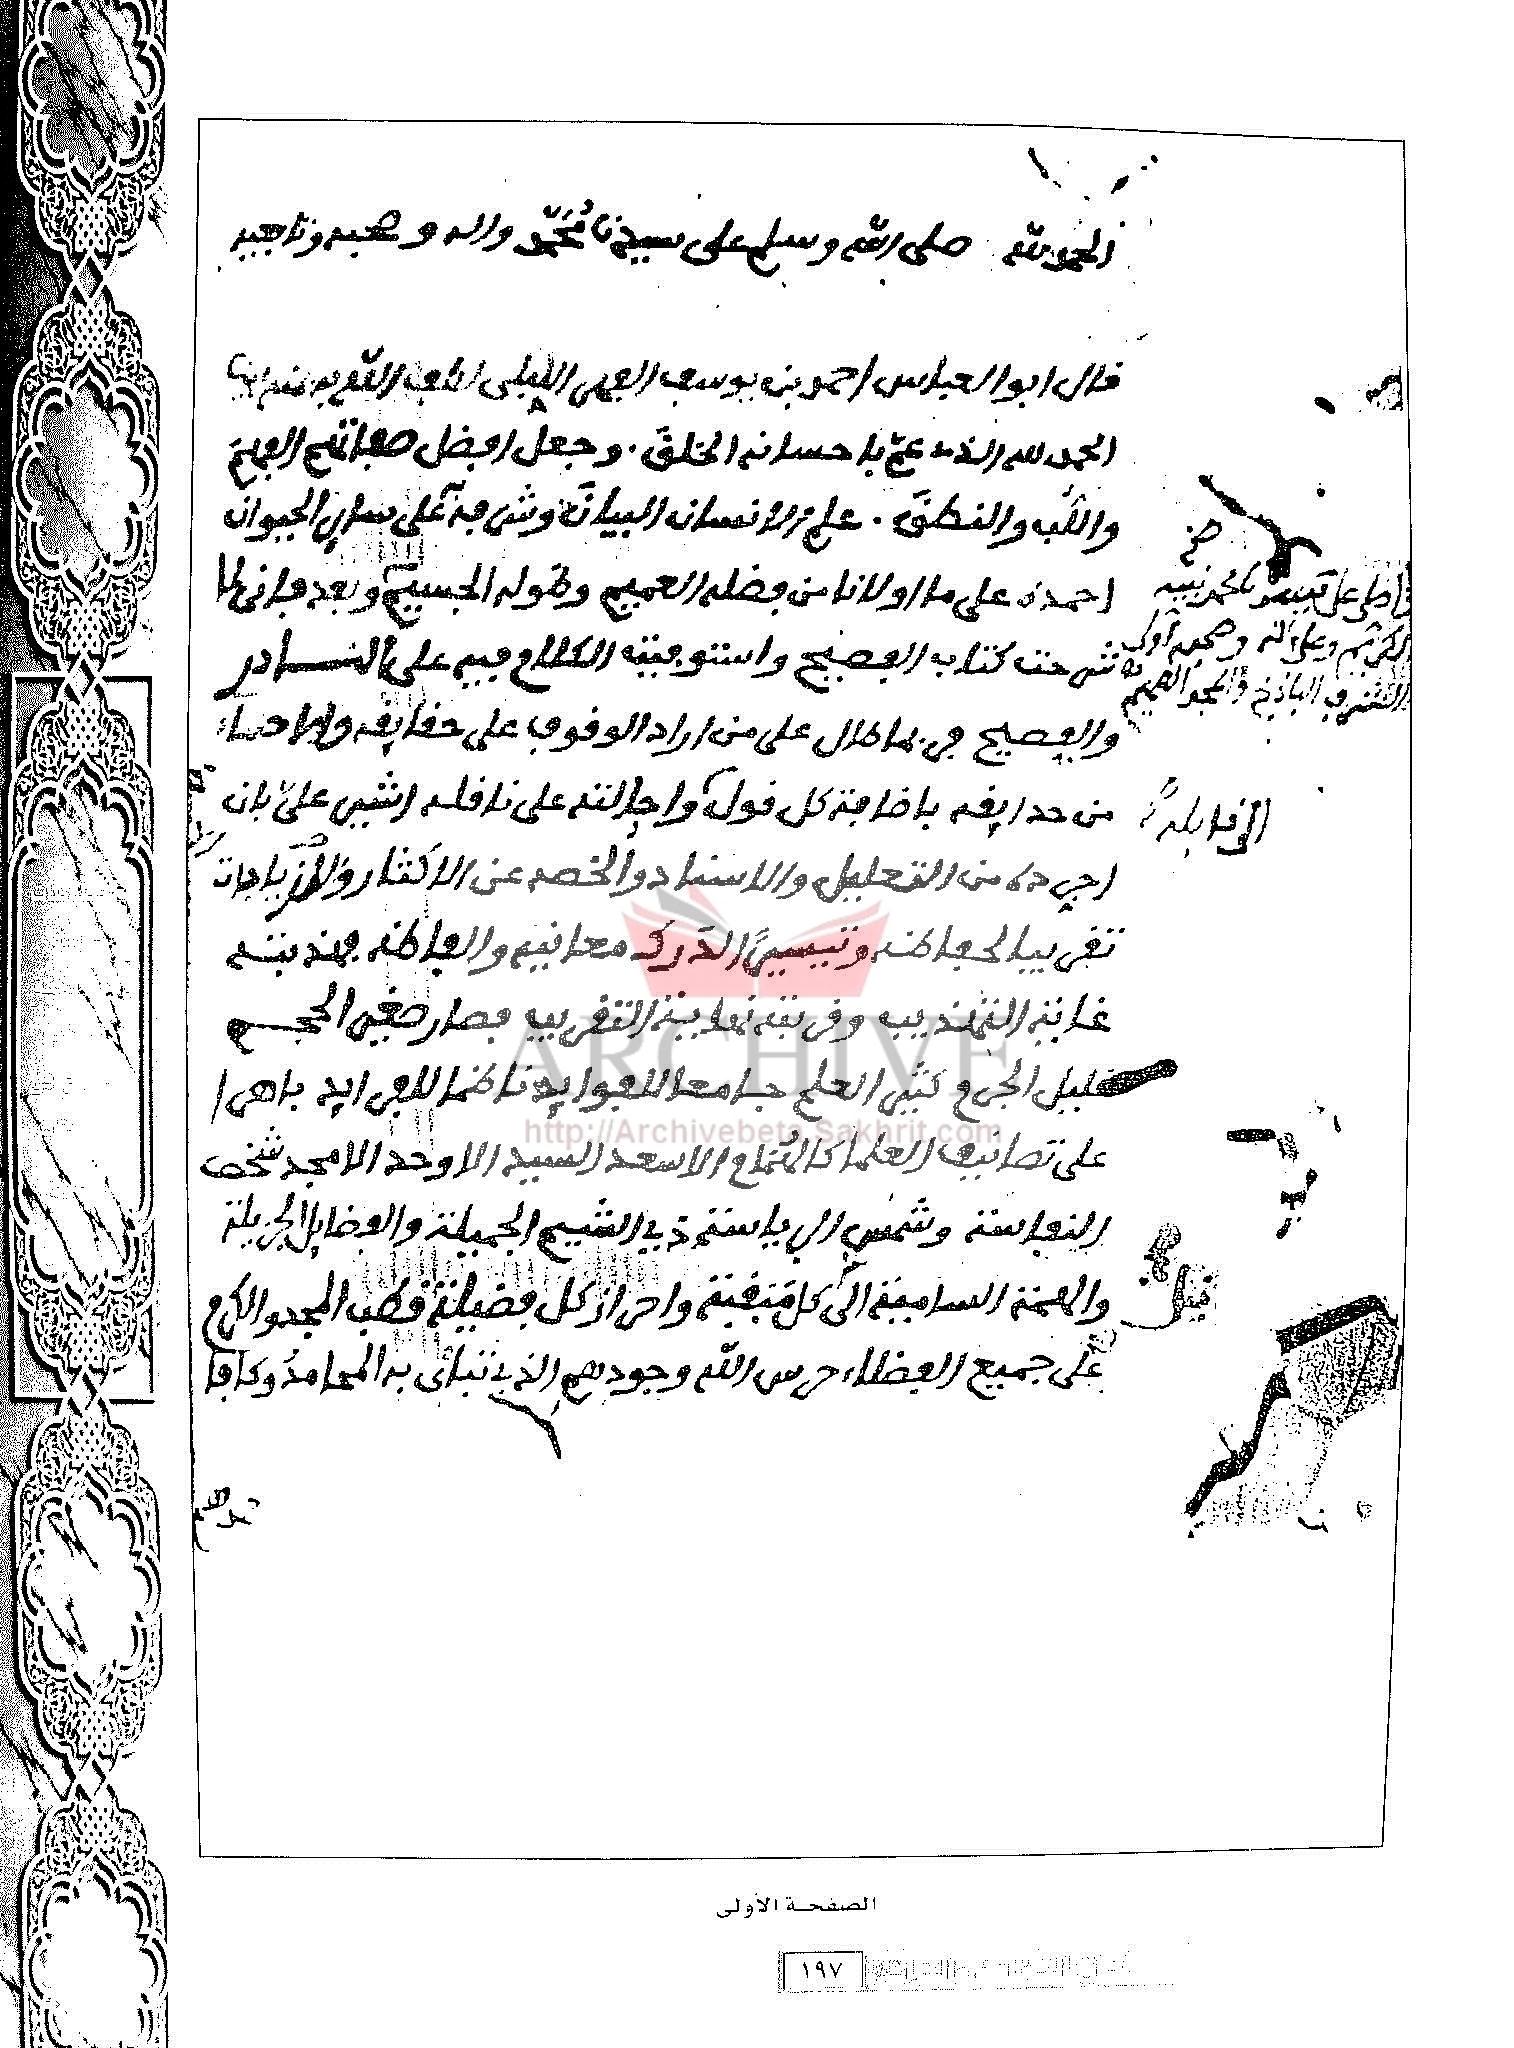 الحمد لله صلى الله وسلم على سيدنا محمد واله وصحبه وتابعيه
قال ابو العباس احمد بن يوسف الفهري اللبلي لطف الله به
الحمد لله الذي عم باحسانه الخلق. وجعل افضل صفاتهم الفهم
واللب والنطق. علم الانسان البيان وشرفه على سائر الحيوان
احمده على ما اولانا من فضله العميم وطوله الجسيم وبعد فانى لما
شرحت كتاب الفصيح واستوفيت الكلام فيه على النادر
والفصيح فربما طال على من اراد الوقوف على حقايقه
من حدايقه باضافة كل قول واحالته على ناقله اشير على بان
اجرده من التعليل والاسناد والخصه عن الاكثار والازيادات
تقريبا لحفاظه وتيسيرا لدرك معانيه والفاظه فهذبته
غاية التهذيب وقربته نهاية التقريب فصار صغير الحجم
قليل الجرم كثير العلم جامعا للفوايد ناظما للفرايد باهرا
على تصانيف العلما كالهمام الاسعد السيد الاوحد الامجد شخص
النفاسة وشمس الرياسة ذي الشيم الجميلة والفضايل الجزيلة
والهمة السامية الى كل منقبة واحراز كل فضيلة قطب المجد والكرم
على جميع الفضلاء حرس الله وجودهم الذي تباى به المحامد
صح
الكريم وعلى آله وصحبه أولى
الشرف الباذخ والمجد الصميم
قبل
ARCHIVE
http://Archivebeta.Sakhrit.com
الصفحة الأولى
١٩٧